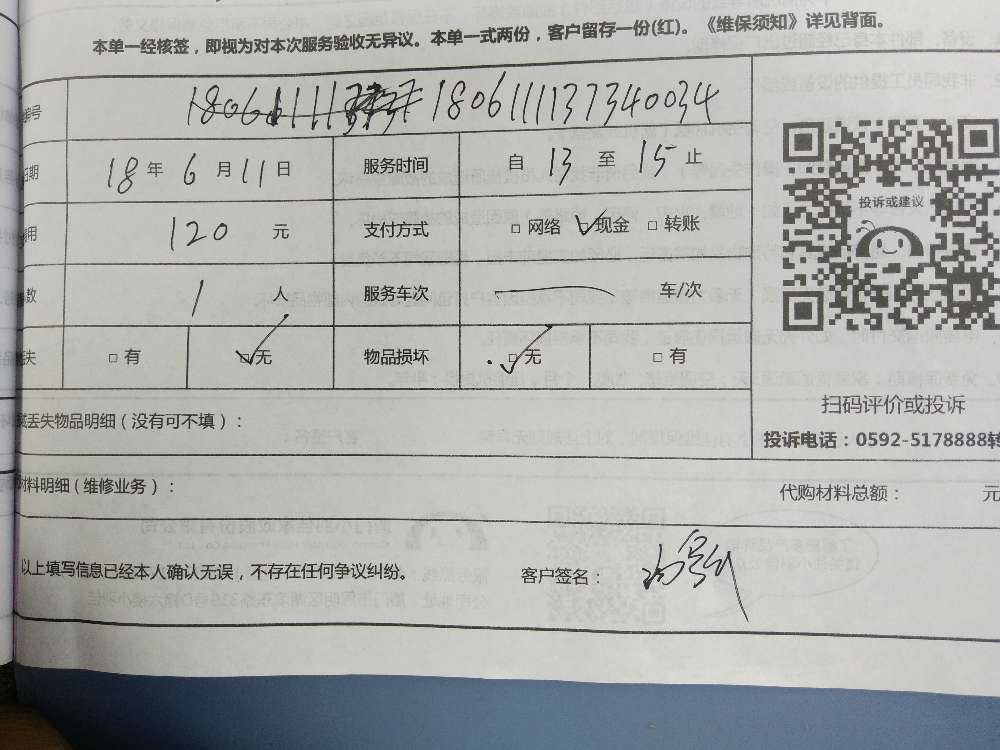 本单一经核签，即视为对本次服务验收无异议。本单一式两份，客户留存一份(红)。《维保须知》详见背面。
号 180611113737340034
日期 18 年 6 月 11 日 服务时间 自 13 至 15 止
用 120 元 支付方式 □ 网络 ☑ 现金 □ 转账
数 1 人 服务车次 — 车/次
失 □ 有 ☑ 无 物品损坏 ☑ 无 □ 有
投诉或建议
扫码评价或投诉
投诉电话：0592-5178888转
丢失物品明细（没有可不填）：
材料明细（维修业务）：
代购材料总额： 元
以上填写信息已经本人确认无误，不存在任何争议纠纷。
客户签名：